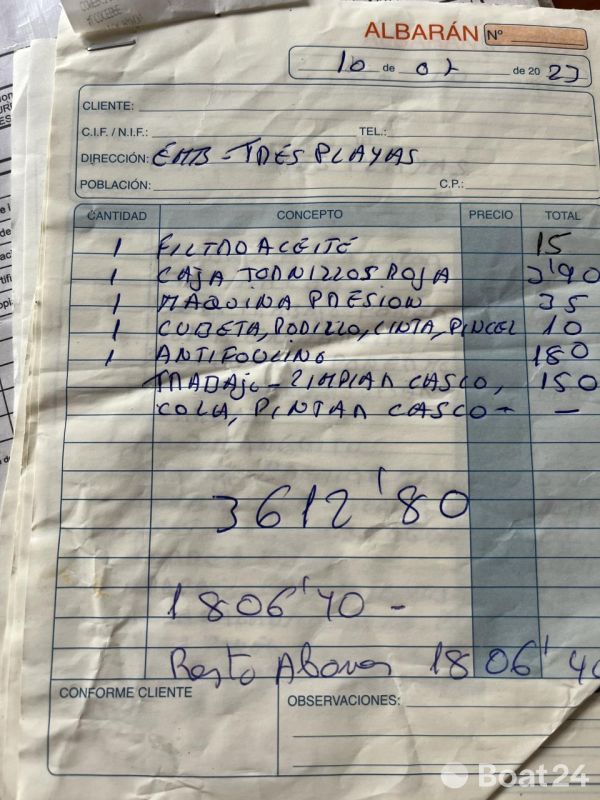 ALBARÁN Nº
10 de 02 de 20 23
CLIENTE:
C.I.F. / N.I.F.: TEL.:
DIRECCIÓN: EMB - TRES PLAYAS
POBLACIÓN: C.P.:
CANTIDAD CONCEPTO PRECIO TOTAL
1 FILTRO ACEITE 15
1 CAJA TORNILLOS ROJA 3'90
1 MAQUINA PRESION 35
1 CUBETA, RODILLO, CINTA, PINCEL 10
1 ANTIFOULING 180
TRABAJO - LIMPIAR CASCO, 150
COLA, PINTAR CASCO - -
3612'80
1806'40 -
Resto Abonar 1806'40
CONFORME CLIENTE
OBSERVACIONES:
Boat24